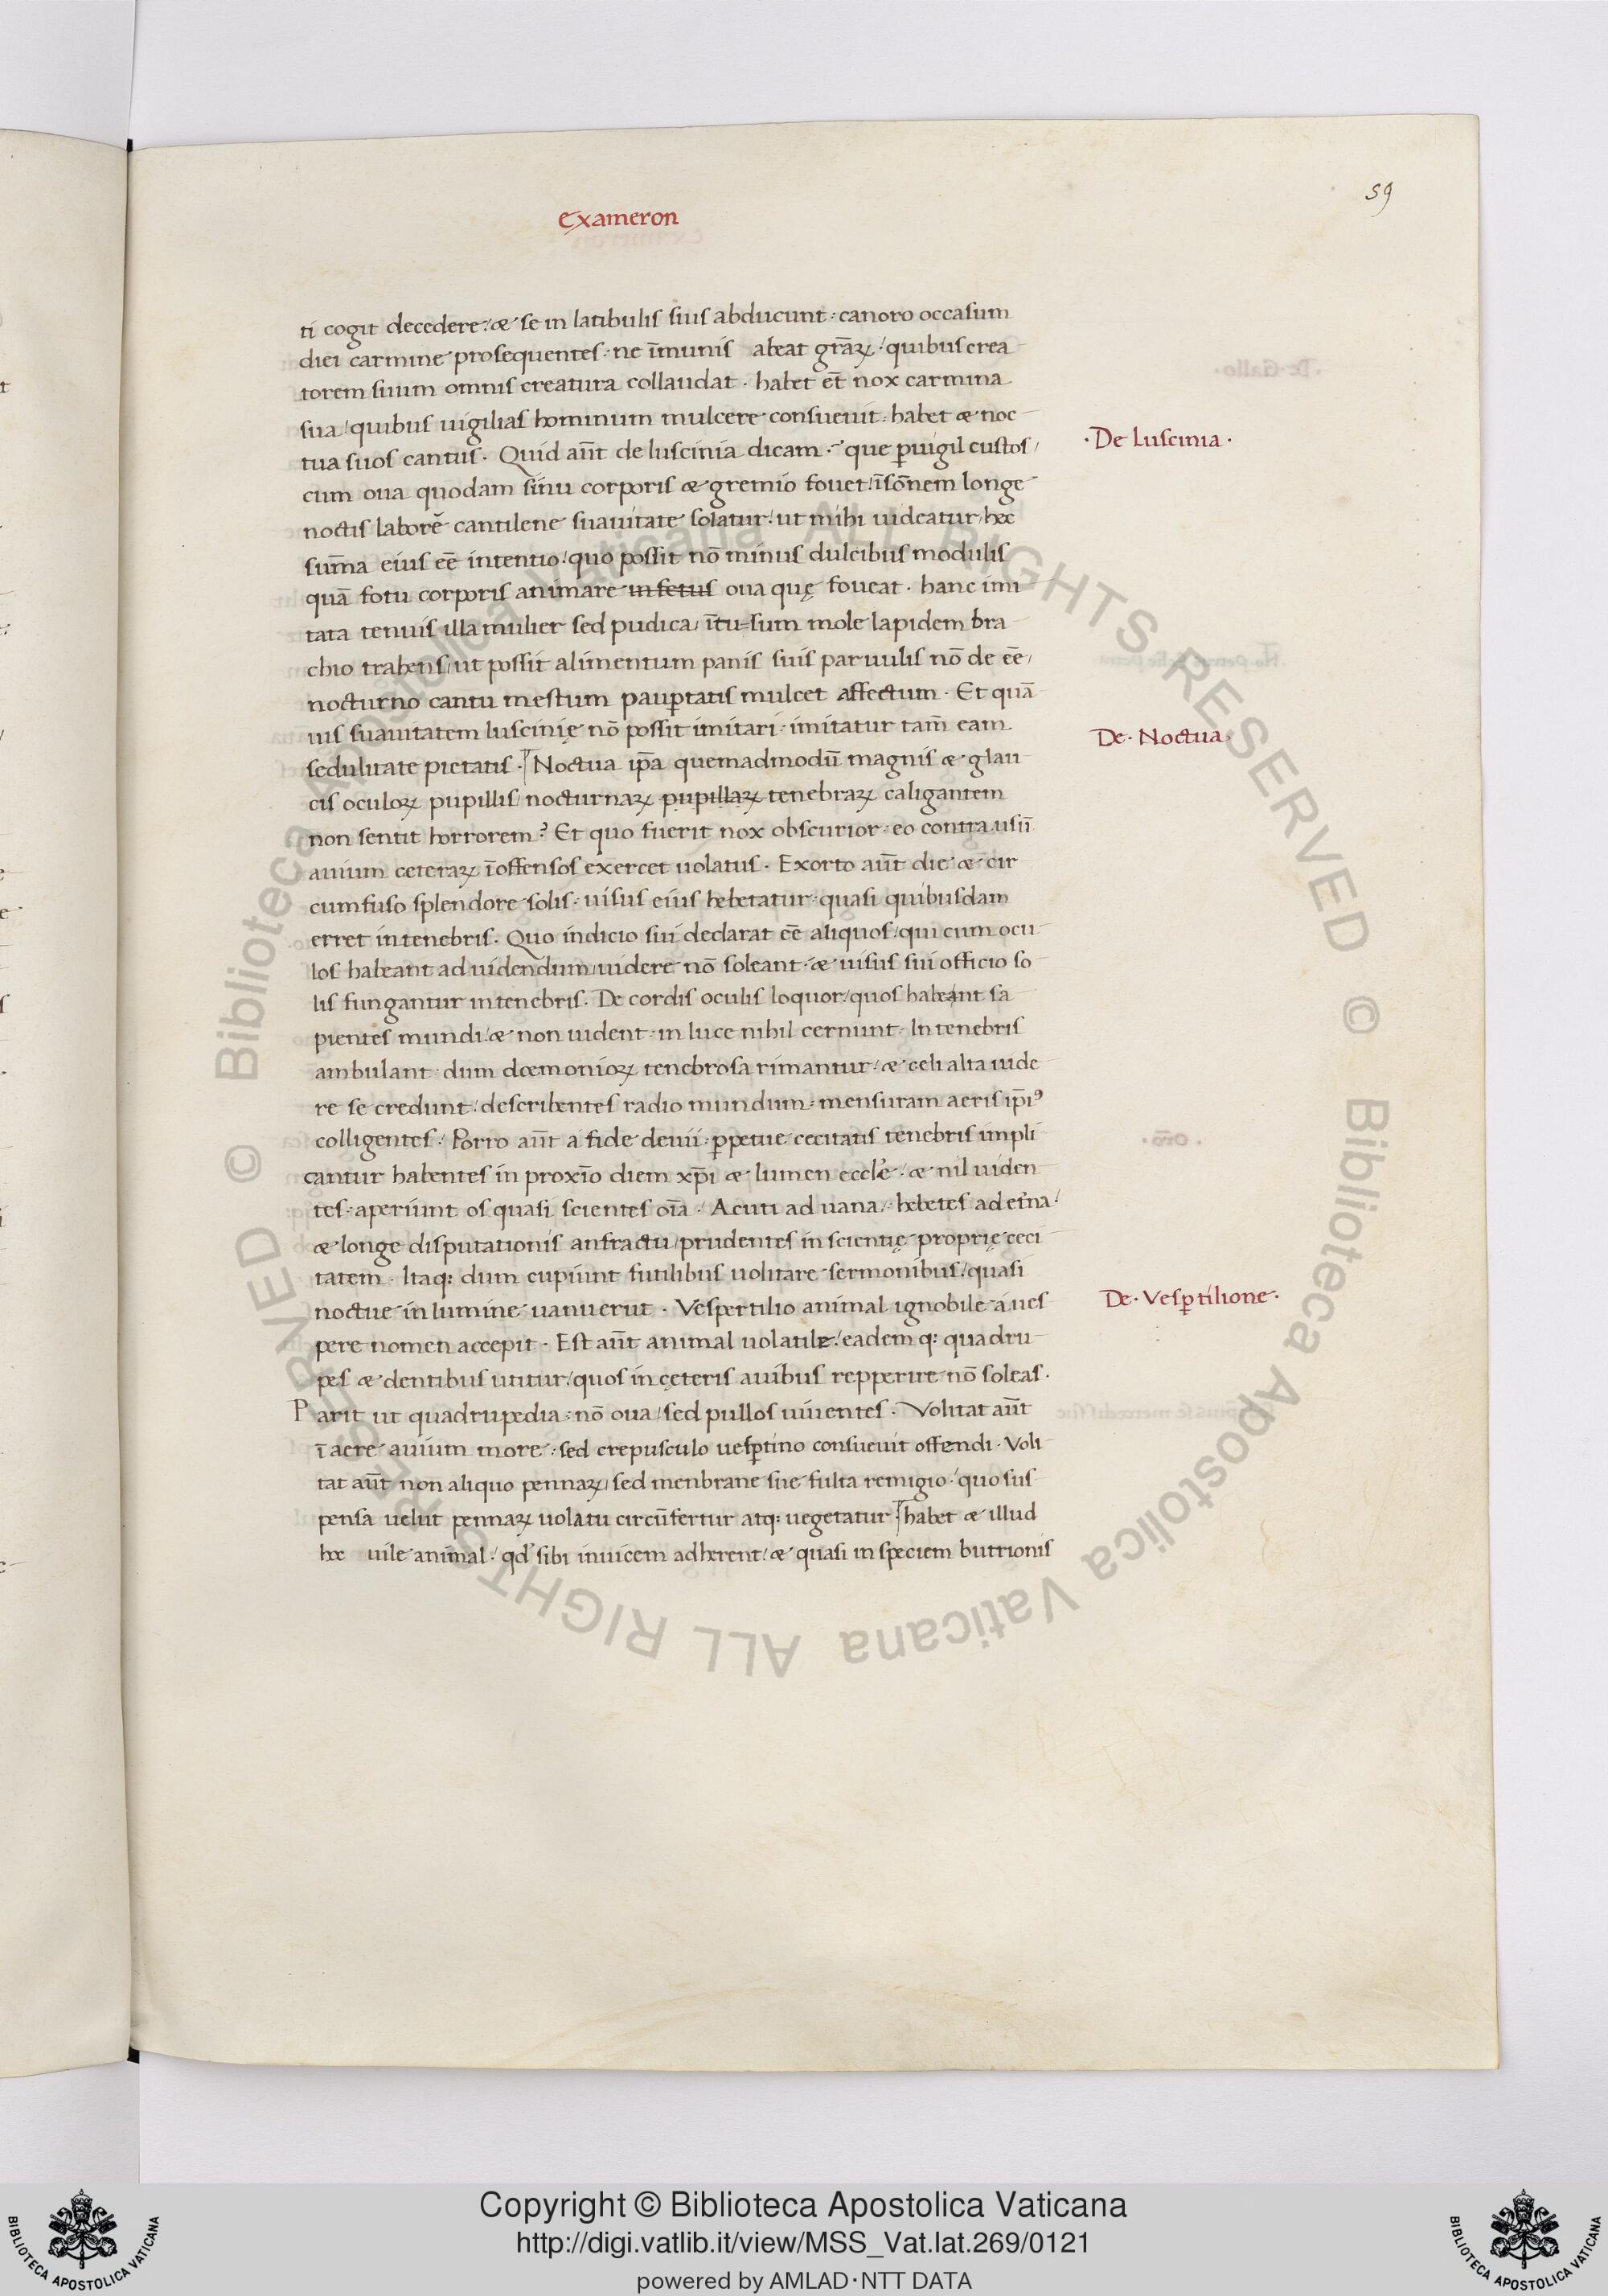 59
exameron
ti cogit decedere: & se in latibulis suis abducunt: canoro occasum
diei carmine prosequentes: ne īmunis abeat grāꝝ: quibus crea
torem suum omnis creatura collaudat. habet et̄ nox carmina
sua/ quibus uigilias hominum mulcere consueuit: habet & noc
tua suos cantus. Quid aūt de luscinia dicam: que ꝑuigil custos/
·De Luscinia·
cum oua quodam sinu corporis & gremio fouet/ īsōnem longe
noctis laborē cantilene suauitate solatur: ut mihi uideatur/ hec
sūma eius eē intentio/ quo possit nō minus dulcibus modulis
quā fotu corporis animare in fetus oua quę foueat. hanc imi
tata tenuis illa mulier sed pudica/ ītu=sum mole lapidem bra
chio trahens/ ut possit alimentum panis suis paruulis nō de eē/
nocturno cantu mestum pauꝑtatis mulcet affectum. Et quā
uis suauitatem luscinię nō possit imitari: imitatur tam̄ eam
De· Noctua·
sedulitate pietatis. Noctua ip̄a quemadmodū magnis & glau
cis oculoꝝ pupillis/ nocturnaꝝ pupillaꝝ tenebraꝝ caligantem
non sentit horrorem? Et quo fuerit nox obscurior: eo contra usū
auium ceteraꝝ īoffensos exercet uolatus. Exorto aūt die & cir
cumfuso splendore solis: uisus eius hebetatur: quasi quibusdam
erret in tenebris. Quo indicio sui declarat eē aliquos/ qui cum ocu
los habeant ad uidendum/ uidere nō soleant: & uisus sui officio so
lis fungantur in tenebris. De cordis oculis loquor/ quos habeant sa
pientes mundi/ & non uident: in luce nihil cernunt: In tenebris
ambulant: dum dœmonioꝝ tenebrosa rimantur/ & celi alta uide
re se credunt/ describentes radio mundum: mensuram aeris ip̄iꝰ
colligentes: Porro aūt a fide deuii: ꝑpetue cecitatis tenebris impli
cantur habentes in proxīo diem xp̄i & lumen eccłe: & nil uiden
tes: aperiunt os quasi scientes oīa: Acuti ad uana/ hebetes ad et̄na/
& longe disputationis anfractu/ prudentes in scientię proprię ceci
tatem. Itaq: dum cupiunt futilibus uolitare sermonibus/ quasi
noctue in lumine uanuerūt. Vespertilio animal ignobile a ues
De· Vesꝑtilione·
pere nomen accepit. Est aūt animal uolatile/ eadem q: quadru
pes & dentibus utitur/ quos in cęteris auibus repperire nō soleas.
Parit ut quadrupedia: nō oua/ sed pullos uiuentes. Volitat aūt
ī aere auium more: sed crepusculo uesꝑtino consueuit offendi. Voli
tat aūt non aliquo pennaꝝ/ sed menbrane sue fulta remigio: quo sus
pensa uelut pennaꝝ uolatu circūfertur atq: uegetatur habet & illud
hoc uile animal: qd' sibi inuicem adherent/ & quasi in speciem butrionis
© Biblioteca Apostolica Vaticana ALL RIGHTS RESERVED © Biblioteca Apostolica Vaticana ALL RIGHTS RESERVED
Copyright © Biblioteca Apostolica Vaticana
http://digi.vatlib.it/view/MSS_Vat.lat.269/0121
powered by AMLAD·NTT DATA
BIBLIOTECA APOSTOLICA VATICANA
BIBLIOTECA APOSTOLICA VATICANA